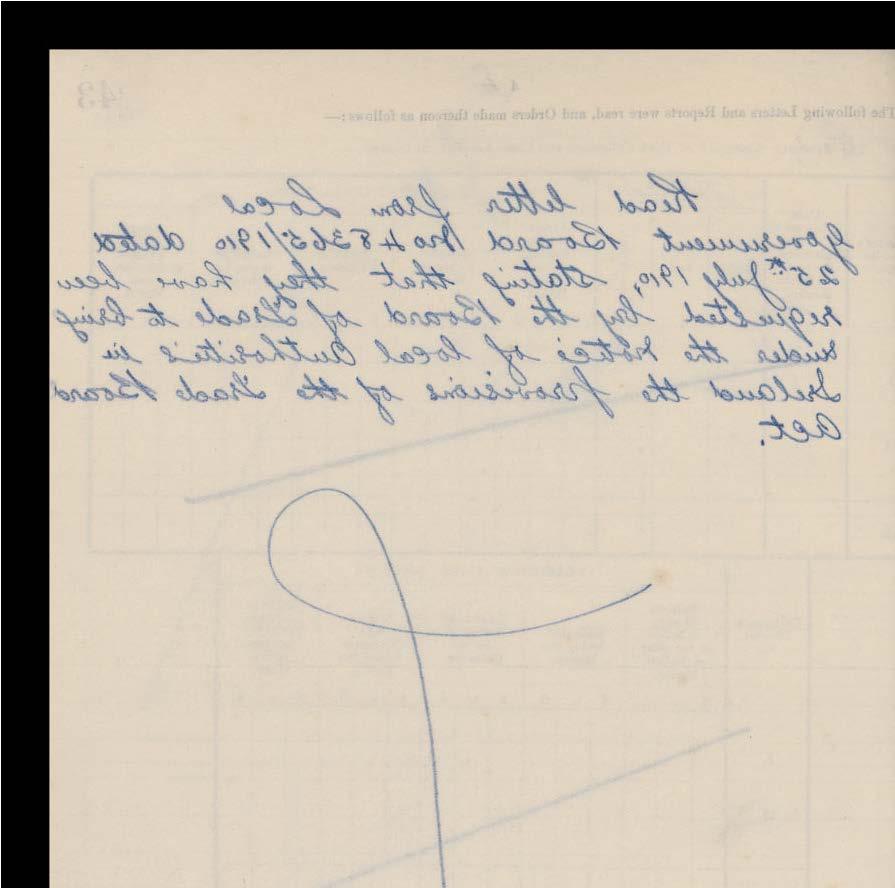 43
4
The Following Letters and Reports were read, and Orders made thereon as follows:—
Read letter from Local
Government Board No 48365/1910 dated
25th July 1910, stating that they have been
requested by the Board of Trade to bring
under the notice of local authorities in
Ireland the provisions of the Trade Board
Act.